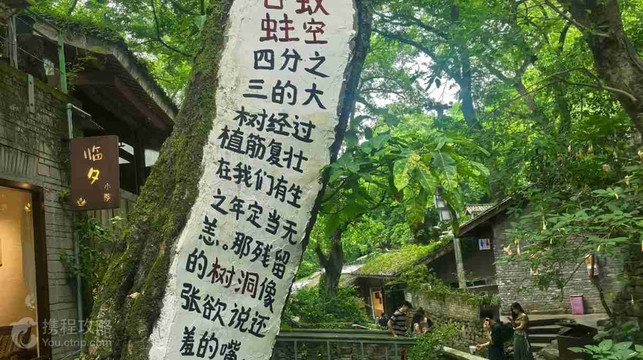 蛀空
四分之
三的大
树经过
植筋复壮
在我们有生
之年定当无
恙。那残留
的树洞像
张欲说还
羞的嘴
临夕
小院
携程攻略
You.ctrip.com